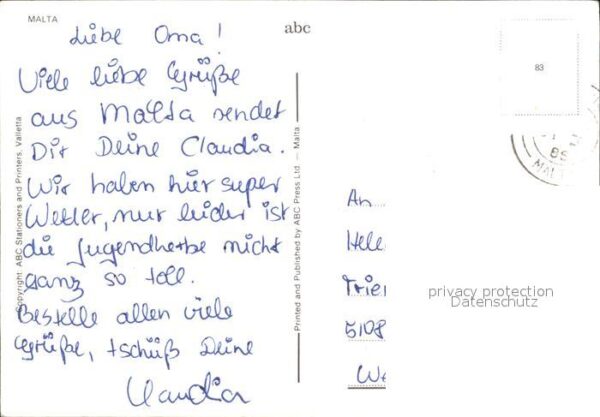 MALTA
abc
Liebe Oma!
Viele liebe Grüße
aus Malta sendet
Dir Deine Claudia.
Wir haben hier super
Wetter, nur leider ist
die Jugendherbe nicht
ganz so toll.
Bestelle allen viele
Grüße, tschüß Deine
Claudia
Copyright: ABC Stationers and Printers, Valletta
Printed and Published by ABC Press Ltd. — Malta
83
85
MALT
An
Hele
Trier
5108
We
privacy protection
Datenschutz